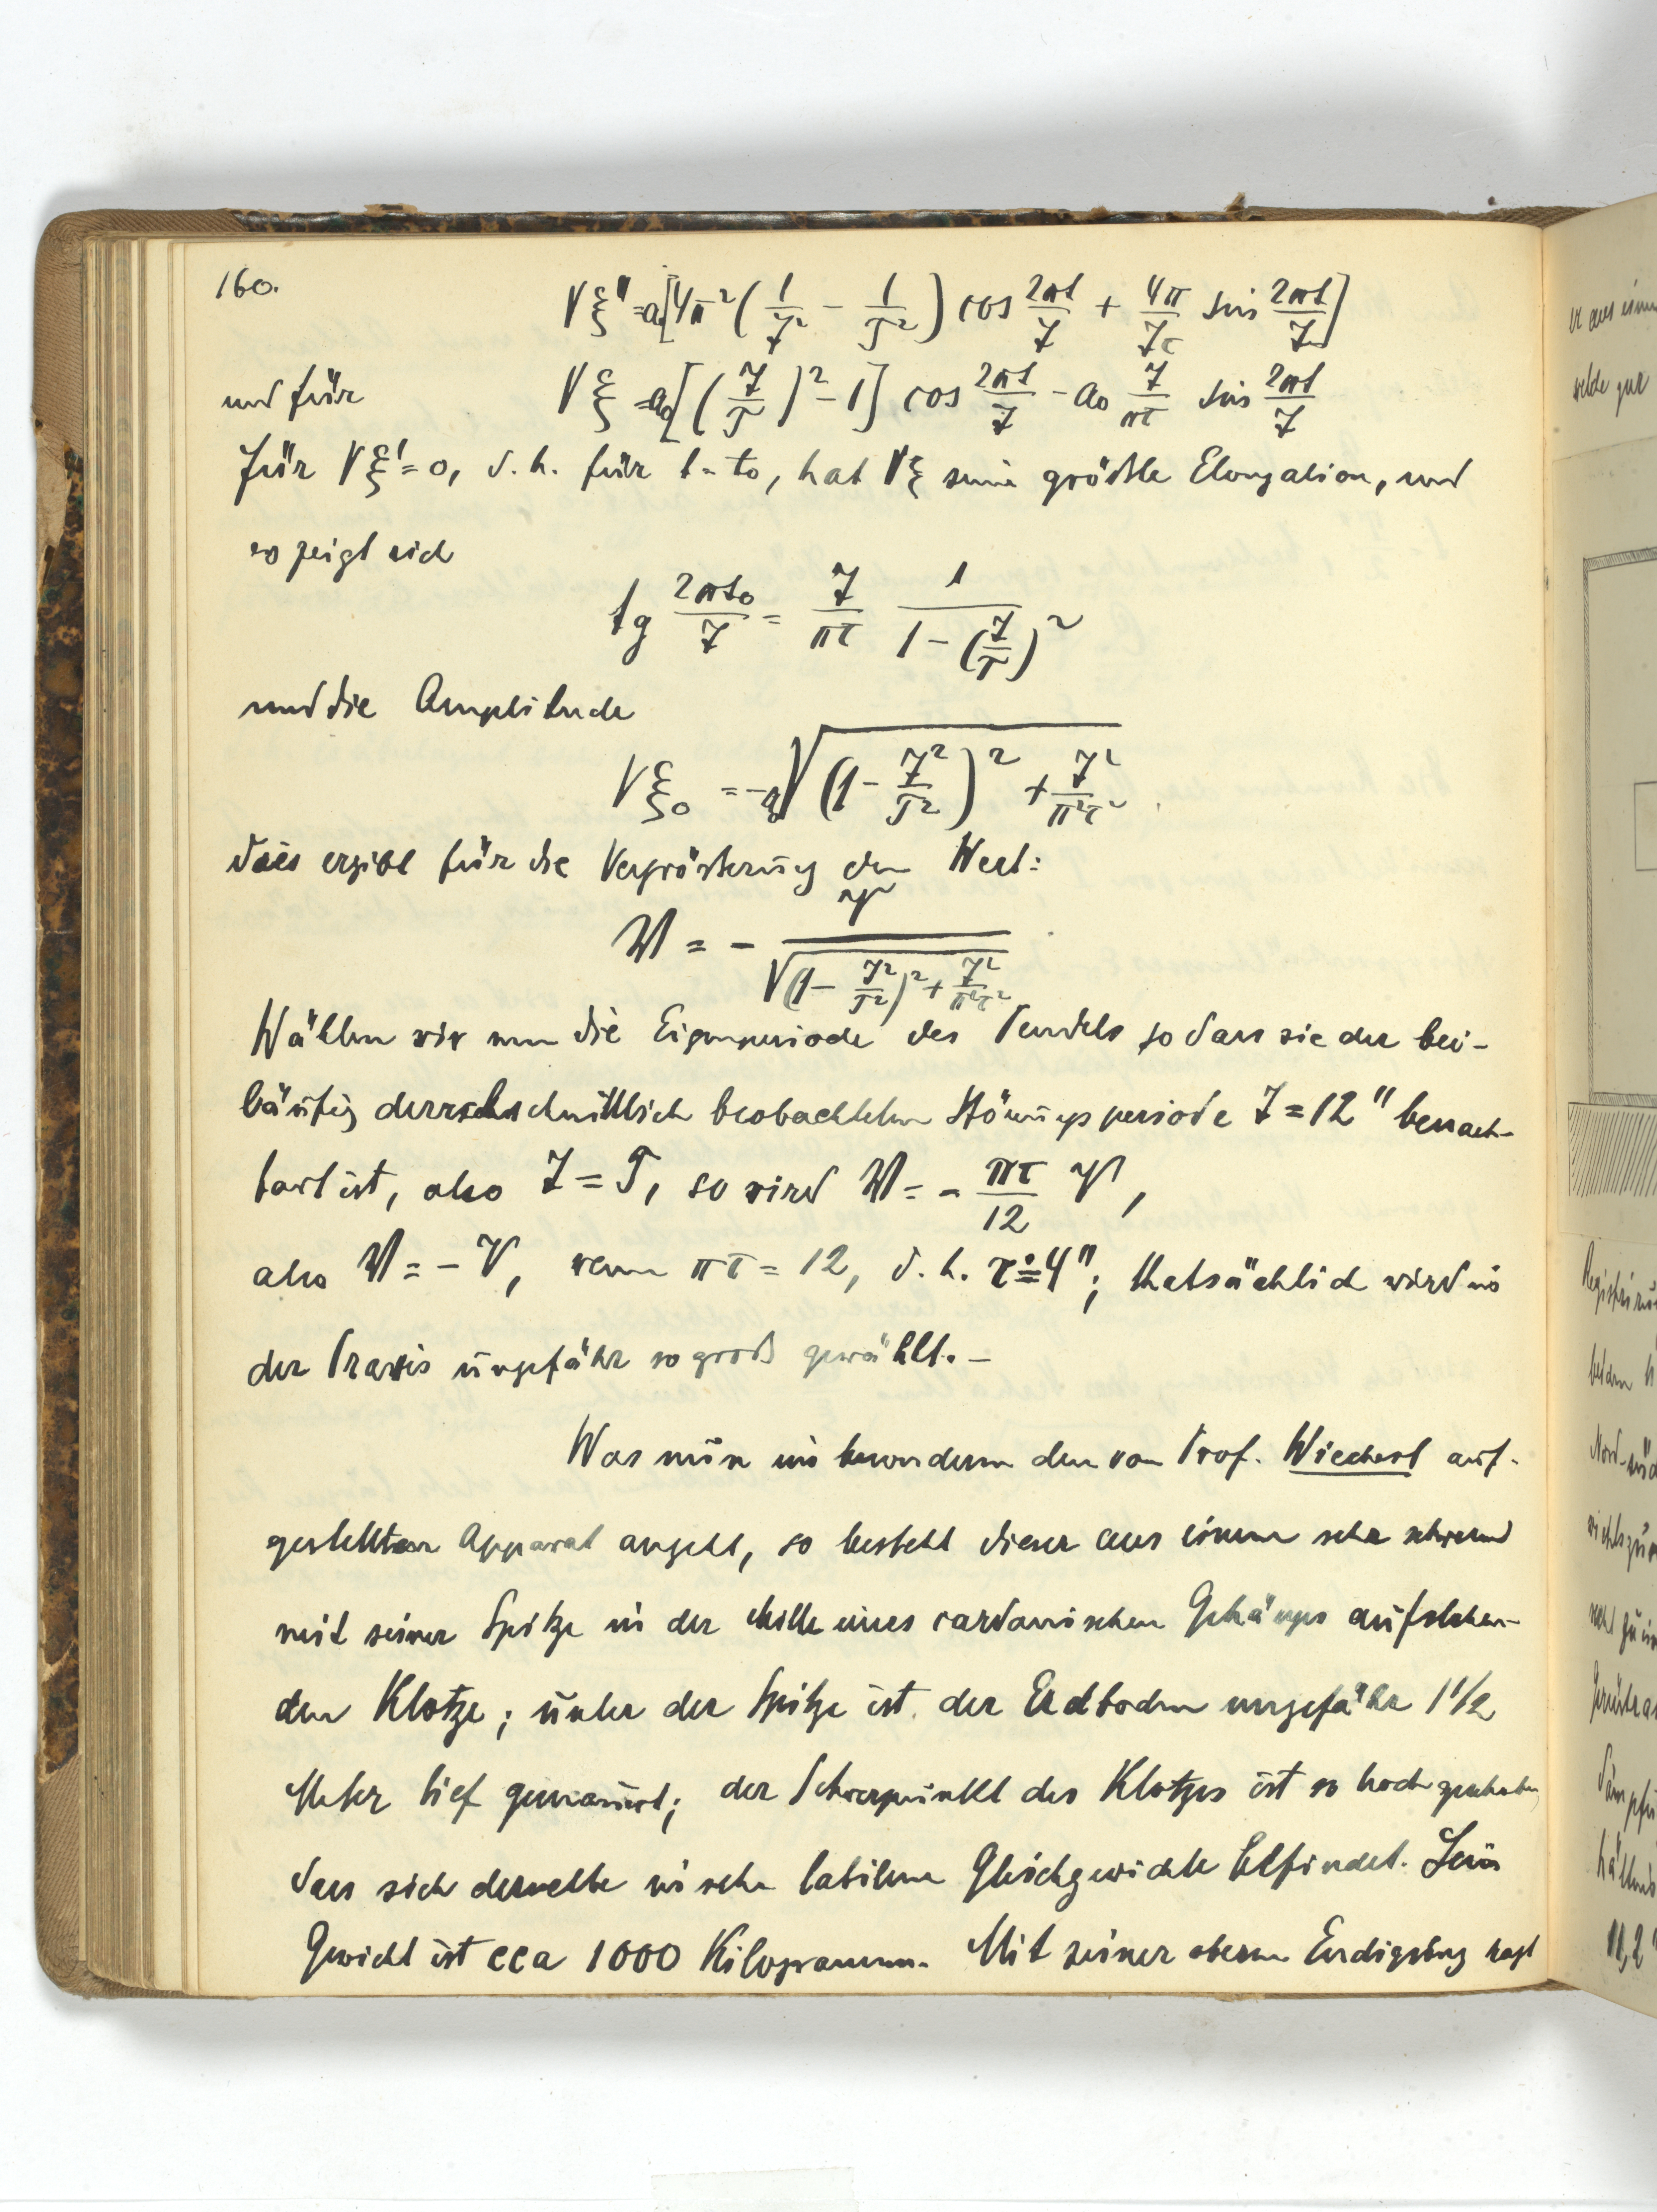 160.
Vξ" = a₀[4π²(1/𝒥² − 1/T²) cos 2πt/𝒥 + 4π/𝒥τ sin 2πt/𝒥]
und für Vξ = a₀[(𝒥/T)² − 1] cos 2πt/𝒥 − a₀ 𝒥/πτ sin 2πt/𝒥
für Vξ' = 0, d. h. für t = t₀, hat Vξ seine größte Elongation, und
es zeigt sich
tg 2πt₀/𝒥 = 𝒥/πτ 1/(1 − (𝒥/T)²)
und die Amplitude
Vξ₀ = −a₀√((1 − 𝒥²/T²)² + 𝒥²/π²τ²)
dies ergibt für die Vergrößerung den Wert:
𝔚 = − V/√((1 − 𝒥²/T²)² + 𝒥²/π²τ²)
Wählen wir nun die Eigenperiode des Pendels so dass sie der bei-
läufig durchschnittlich beobachteten Störungsperiode 𝒥 = 12" benach-
bart ist, also 𝒥 = T, so wird 𝔚 = − πτ/12 V,
also 𝔚 = − V, wenn πτ = 12, d. h. τ ≐ 4"; thatsächlich wird in
der Praxis ungefähr so groß gewählt. –
Was nun im besondern den von Prof. Wiechert auf-
gestellten Apparat angeht, so besteht dieser aus einem sehr schweren
mit seiner Spitze in der Mitte eines cardanischen Gehänges aufstehen-
den Klotze; unter der Spitze ist der Erdboden ungefähr 1 1/2
Meter tief gemauert; der Schwerpunkt des Klotzes ist so hoch gehoben
dass sich derselbe in sehr labilem Gleichgewichte befindet. Sein
Gewicht ist cca 1000 Kilogramm. Mit seiner oberen Endigung ragt
er aus einem
welche zur
Registrirun
beiden
Nord-süd
11,2